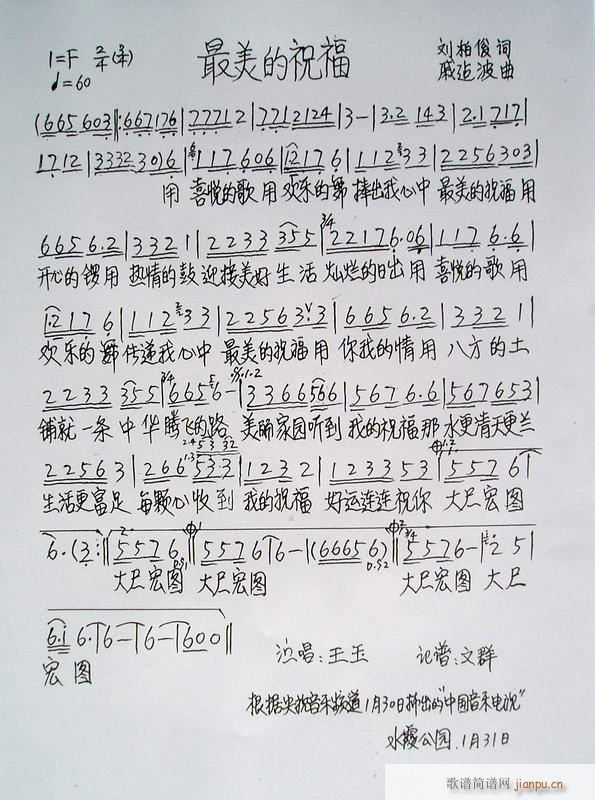 最美的祝福
1=F 2/4 (3/4)
♩=60
刘柏俊 词
戚建波 曲
(665 603‖:667176|77712|7712124|3-|3.2 143|2.1717|
1712|3332 30)6|117606|1217 6|112 33|2256303|
用 喜悦的歌 用 欢乐的舞 捧出我心中 最美的祝福 用
665 6.2|332 1|2233 355|22176.06|117 6.6|
开心的锣 用 热情的鼓 迎接美好 生 活 灿烂的日出 用 喜悦的歌 用
1217 6|112 33|225633|665 6.2|332 1|
欢乐的舞 传递我心中 最美的祝福 用 你我的情 用 八方的土
2233 355|6656-|3366566|5676.6|567653|
铺就一条 中 华 腾飞的路 美丽家园听到 我的祝福 那 水更清天更兰
22563|266533|1232|123353|5576|
生活更富足 每颗心收到 我的祝福 好运连连祝你 大尺宏图
6.(3:‖5576|55766-|(66656)|5576-|25|
大尺宏图 大尺宏图 大尺宏图 大尺
6.1 6.6-6-600‖
宏 图
演唱:王玉 记谱:文群
根据央视音乐频道1月30日播出的"中国音乐电视"
水霞公园.1月31日
歌谱简谱网
jianpu.cn